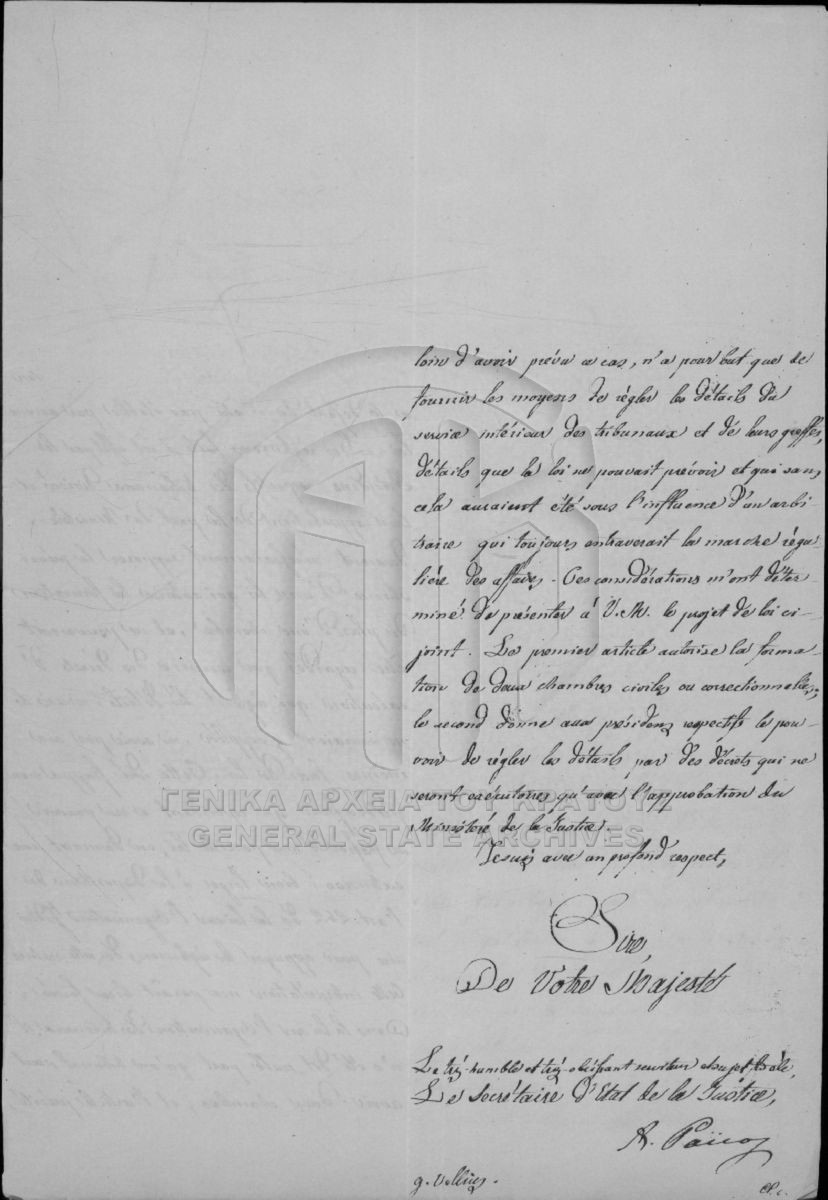 loin d'avoir prévu ce cas, n'a pour but que de
fournir les moyens de régler les détails du
service intérieur des tribunaux et de leurs greffes,
détails que la loi ne pouvait prévoir et qui sans
cela auraient été sous l'influence d'un arbi-
traire qui toujours entraverait la marche régu-
lière des affaires. Ces considérations m'ont déter-
miné de présenter à V. M. le projet de loi ci-
joint. Le premier article autorise la forma-
tion de deux chambres civiles ou correctionnelles;
le second donne aux présidens respectifs le pou-
voir de régler les détails par des décrets qui ne
seront exécutoires qu'avec l'approbation du
Ministère de la Justice.
ΓΕΝΙΚΑ ΑΡΧΕΙΑ ΤΟΥ ΚΡΑΤΟΥΣ
GENERAL STATE ARCHIVES
Je suis avec un profond respect,
Sire,
De Votre Majesté
Le très-humble et très-obéissant serviteur et sujet fidèle,
Le Secrétaire d'Etat de la Justice,
A. Païcos